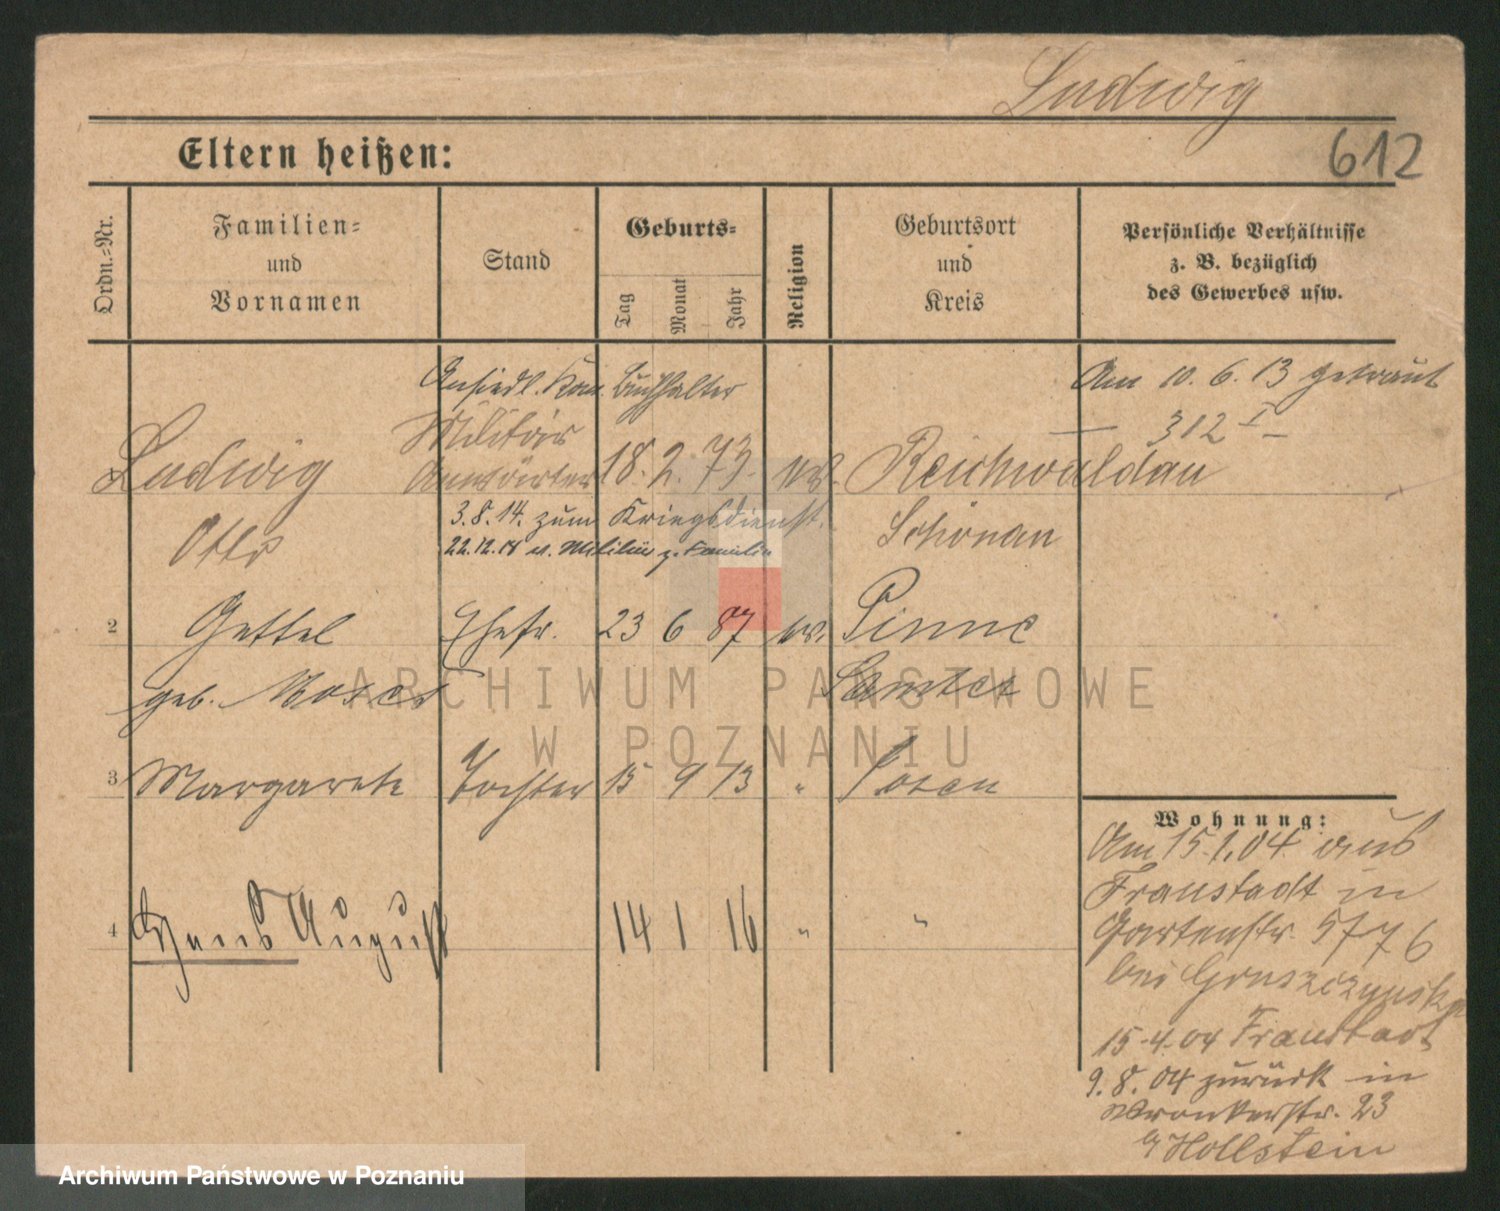 Ludwig
612
Eltern heißen:
Ordn.-Nr.
Familien-
und
Vornamen
Stand
Geburts-
Tag
Monat
Jahr
Religion
Geburtsort
und
Kreis
Persönliche Verhältnisse
z. B. bezüglich
des Gewerbes usw.
Ansiedl. Kom. Buchhalter
Am 10. 6. 13 getraut
Militär
312 I
Ludwig Anwärter 18. 2. 73. ev. Reichwaldau
3. 8. 14. zum Kriegsdienst.
Otto
Schönau
22.12.18 v. Militär z. Familie
2 Gettel Ehefr. 23 6 87 ev. Pinne
geb. Moses Samter
3 Margarete Tochter 15 9 13 " Posen
Wohnung:
Am 15.1.04 aus
Fraustadt in
4 Hans August 14 1 16 " "
Gartenstr.
bei Gruszczynska
15.4.04 Fraustadt
9. 8. 04 zurück in
Wronkerstr. 23
b/ Hollstein
ARCHIWUM PAŃSTWOWE
W POZNANIU
Archiwum Państwowe w Poznaniu